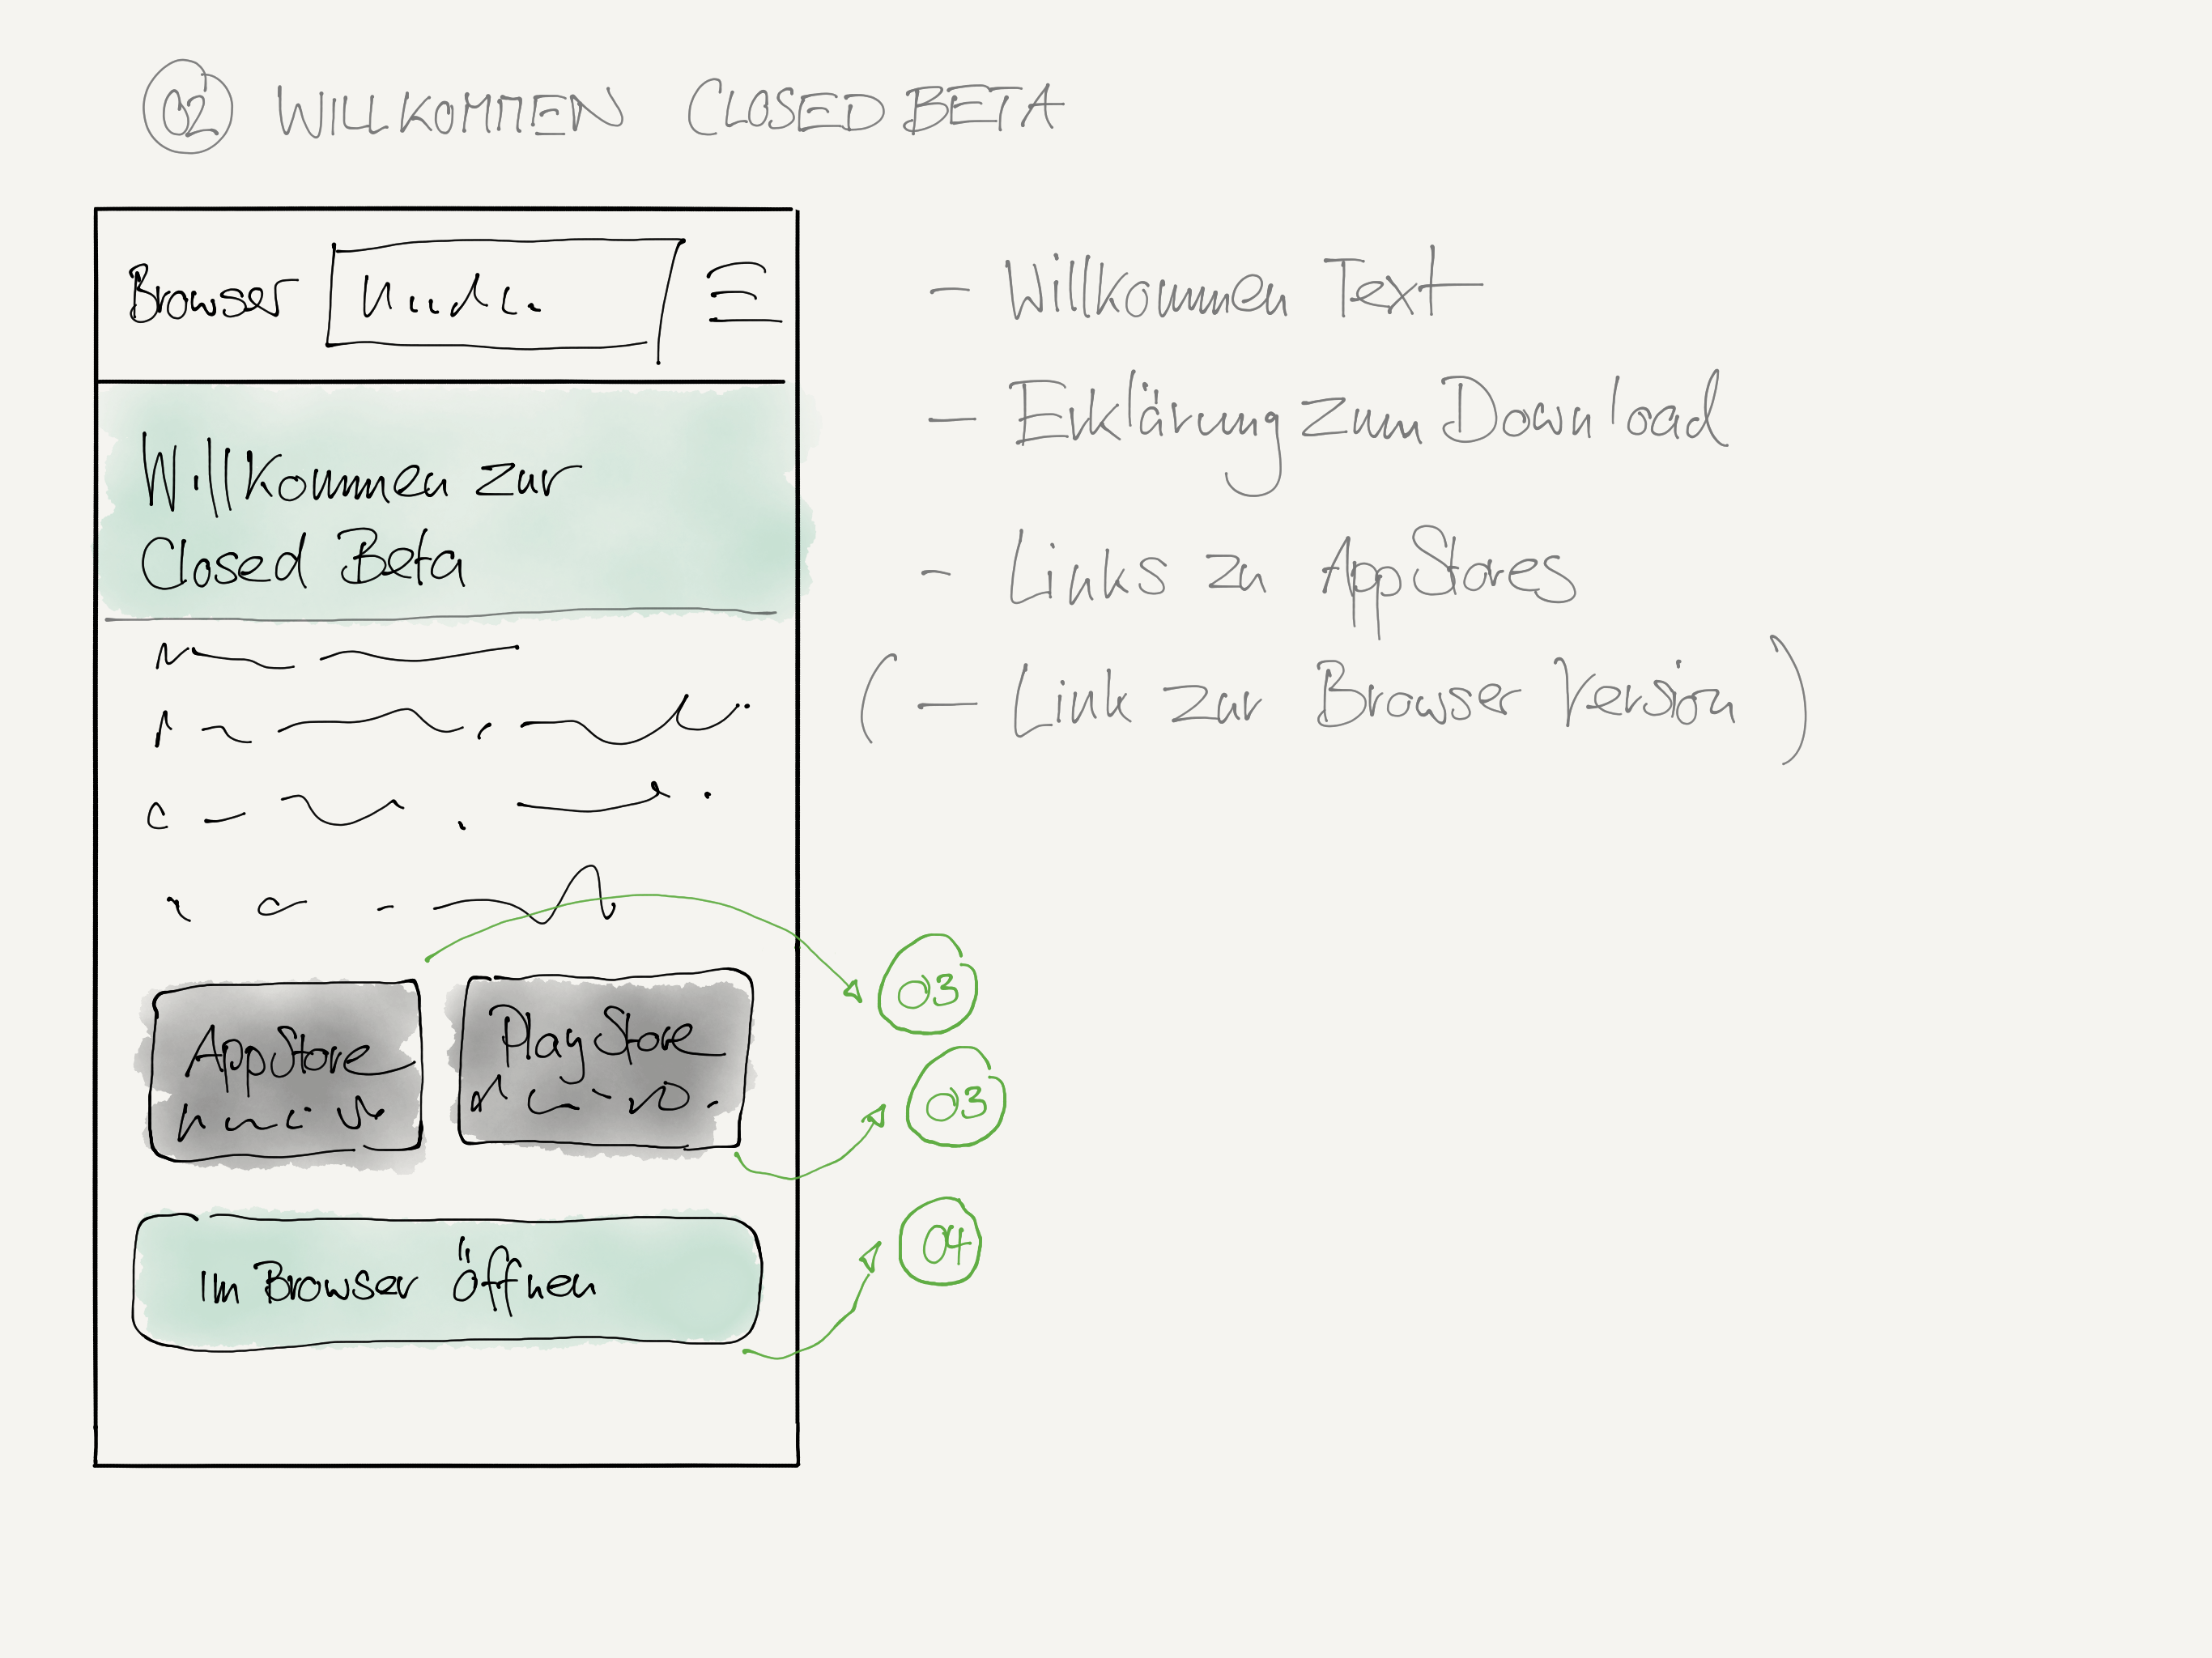 02 WILLKOMMEN CLOSED BETA
Browser
Willkommen zur
Closed Beta
AppStore
PlayStore
im Browser öffnen
- Willkommen Text
- Erklärung zum Download
- Links zu AppStores
(- Link zur Browser Version)
03
03
04